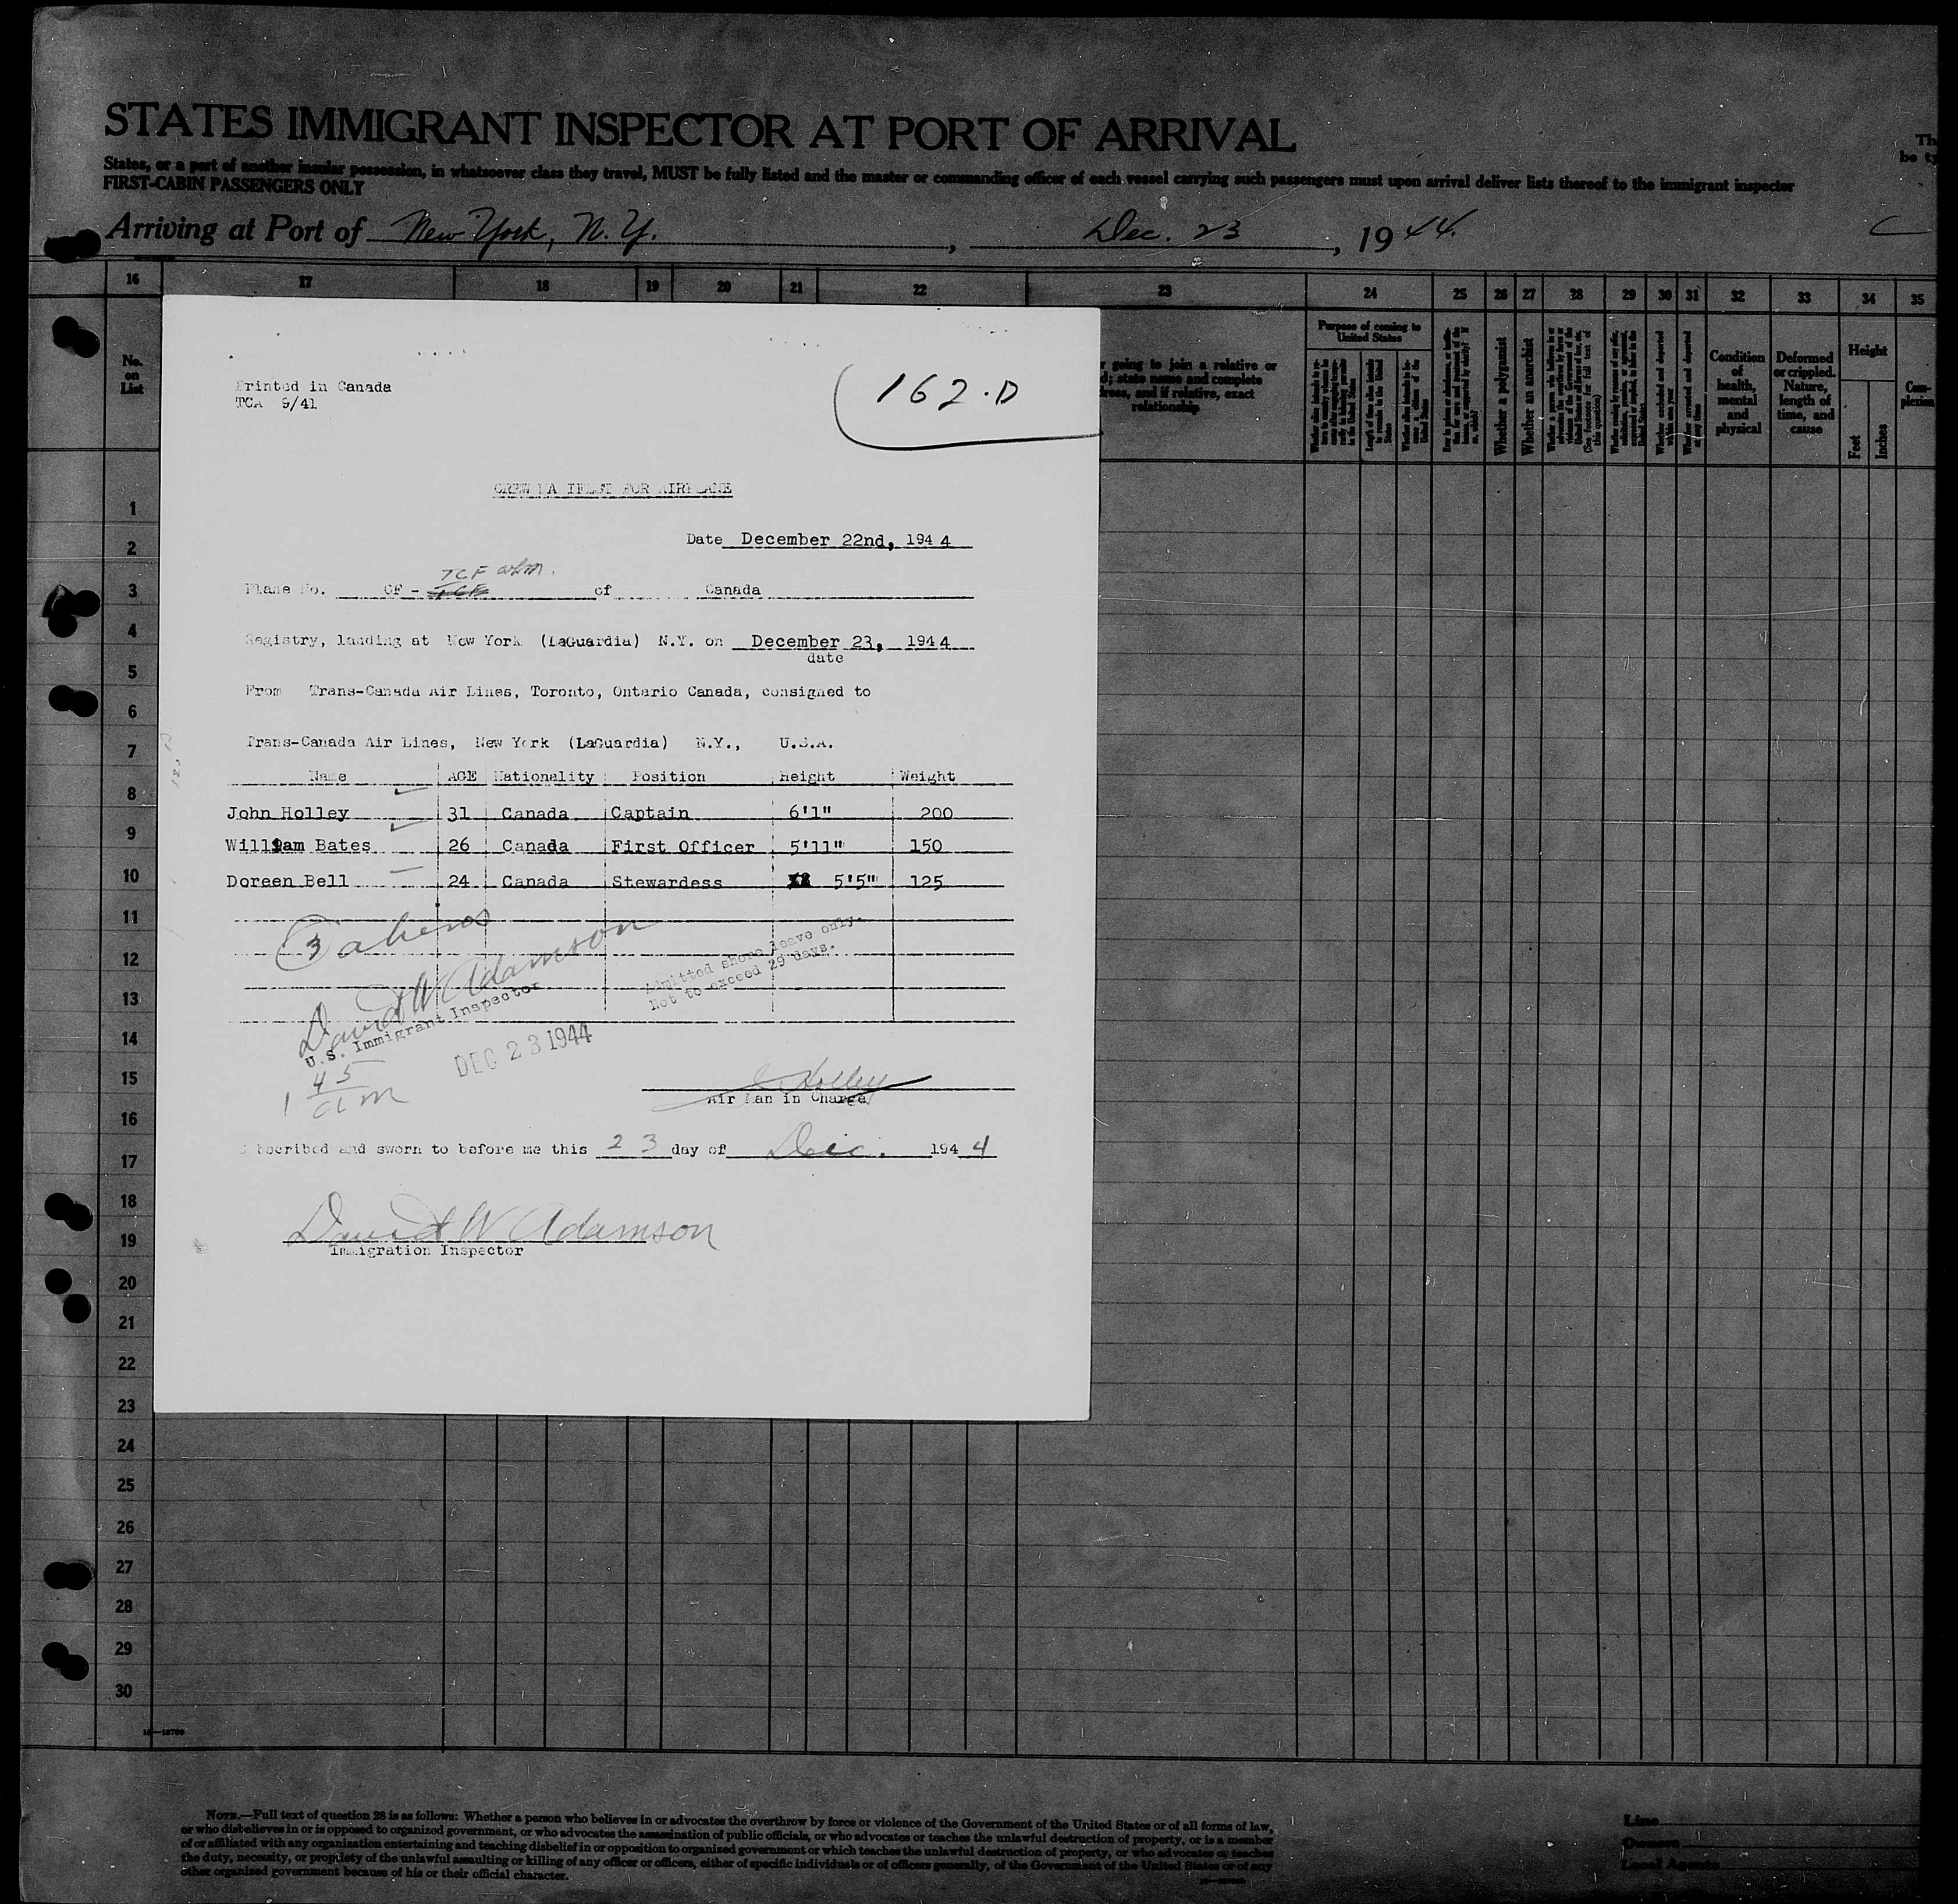 STATES IMMIGRANT INSPECTOR AT PORT OF ARRIVAL
Th
be ty
States, or a port of another insular possession, in whatsoever class they travel, MUST be fully listed and the master or commanding officer of each vessel carrying such passengers must upon arrival deliver lists thereof to the immigrant inspector
FIRST-CABIN PASSENGERS ONLY
Arriving at Port of New York, N.Y. , Dec. 23 , 1944
16 17 18 19 20 21 22 23 24 25 26 27 28 29 30 31 32 33 34 35
No. on List
going to join a relative or
; state name and complete
ress, and if relative, exact
relationship
Purpose of coming to United States
Whether a polygamist
Whether an anarchist
Condition of health, mental and physical
Deformed or crippled. Nature, length of time, and cause
Height
Feet
Inches
Com-
plexion
Printed in Canada
TCA 9/41
162.D
CREW MANIFEST FOR AIRPLANE
Date December 22nd, 1944
TCF
Plane No. CF - of Canada
Registry, landing at New York (LaGuardia) N.Y. on December 23, 1944
date
From Trans-Canada Air Lines, Toronto, Ontario Canada, consigned to
Trans-Canada Air Lines, New York (LaGuardia) N.Y., U.S.A.
Name AGE Nationality Position Height Weight
John Holley 31 Canada Captain 6'1" 200
William Bates 26 Canada First Officer 5'11" 150
Doreen Bell 24 Canada Stewardess 5'5" 125
3 aliens
David W Adamson
U.S. Immigrant Inspector
Admitted shore leave only.
Not to exceed 29 days.
DEC 23 1944
1 45
am
J. Holley
Air Man in Charge
bscribed and sworn to before me this 23 day of Dec. 1944
David W Adamson
Immigration Inspector
1
2
3
4
5
6
7
8
9
10
11
12
13
14
15
16
17
18
19
20
21
22
23
24
25
26
27
28
29
30
16—18709
NOTE.—Full text of question 28 is as follows: Whether a person who believes in or advocates the overthrow by force or violence of the Government of the United States or of all forms of law,
or who disbelieves in or is opposed to organized government, or who advocates the assassination of public officials, or who advocates or teaches the unlawful destruction of property, or is a member
of or affiliated with any organization entertaining and teaching disbelief in or opposition to organized government or which teaches the unlawful destruction of property, or who advocates or teaches
the duty, necessity, or propriety of the unlawful assaulting or killing of any officer or officers, either of specific individuals or of officers generally, of the Government of the United States or of any
other organized government because of his or their official character.
Line
Owners
Local Agents